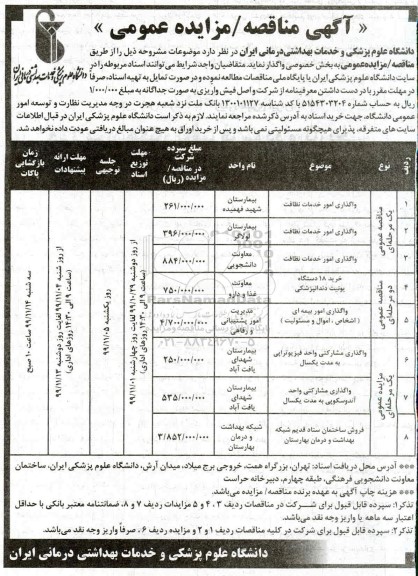 « آگهی مناقصه/مزایده عمومی »
دانشگاه علوم پزشکی و خدمات بهداشتی درمانی ایران در نظر دارد موضوعات مشروحه ذیل را از طریق
مناقصه/مزایده عمومی به بخش خصوصی واگذار نماید. متقاضیان واجد شرایط می توانند اسناد مربوطه را در
سایت دانشگاه علوم پزشکی ایران یا پایگاه ملی مناقصات مطالعه نموده و در صورت تمایل به تهیه اسناد، صرفاً
در مهلت مقرر با در دست داشتن معرفینامه از شرکت و اصل فیش واریزی به صورت جداگانه به مبلغ ۱/۰۰۰/۰۰۰
ریال به حساب شماره ۵۱۵۴۳۰۳۲۰۴ با کد شناسه ۱۳۰۰۱۰۱۱۲۷ بانک ملت نزد شعبه هجرت در وجه مدیریت نظارت و توسعه امور
عمومی دانشگاه، جهت خرید اسناد به آدرس ذکر شده مراجعه نمایند. لازم به ذکر است دانشگاه علوم پزشکی ایران در قبال اطلاعات
سایت های متفرقه، پذیرای هیچگونه مسئولیتی نمی باشد و پس از خرید اوراق به هیچ عنوان مبالغ دریافتی عودت داده نخواهد شد.
ردیف نوع موضوع نام واحد مبلغ سپرده شرکت در مناقصه/مزایده (ریال) مهلت توزیع اسناد جلسه توجیهی مهلت ارائه پیشنهادات زمان بازگشایی پاکات
یک مرحله‌ای مناقصه عمومی
۱ واگذاری امور خدمات نظافت بیمارستان شهید فهمیده ۲۶۱/۰۰۰/۰۰۰
۲ واگذاری امور خدمات نظافت بیمارستان ۳۹۶/۰۰۰/۰۰۰
۳ واگذاری امور خدمات نظافت معاونت دانشجویی ۸۸۴/۰۰۰/۰۰۰
دو مرحله‌ای مناقصه عمومی
۴ خرید ۱۸ دستگاه یونیت دندانپزشکی معاونت غذا و دارو ۷۵۰/۰۰۰/۰۰۰
۵ واگذاری امور بیمه ای (اشخاص، اموال و مسئولیت) مدیریت امور پشتیبانی و رفاهی ۴/۷۰۰/۰۰۰/۰۰۰
یک مرحله‌ای مزایده عمومی
۶ واگذاری مشارکتی واحد فیزیوتراپی به مدت یکسال بیمارستان شهدای یافت آباد ۲۵۰/۰۰۰/۰۰۰
۷ واگذاری مشارکتی واحد آندوسکوپی به مدت یکسال بیمارستان شهدای یافت آباد ۵۳۵/۰۰۰/۰۰۰
۸ فروش ساختمان ستاد قدیم شبکه بهداشت و درمان بهارستان شبکه بهداشت و درمان بهارستان ۳/۸۵۲/۰۰۰/۰۰۰
از روز دوشنبه ۹۹/۱۰/۲۹ لغایت روز چهارشنبه ۹۹/۱۱/۰۱ (ساعت ۹ الی ۱۴:۳۰ روزهای اداری)
روز یکشنبه ۹۹/۱۱/۰۵
از روز شنبه ۹۹/۱۱/۰۴ لغایت روز دوشنبه ۹۹/۱۱/۱۳ (ساعت ۹ الی ۱۴:۳۰ روزهای اداری)
سه شنبه ۹۹/۱۱/۱۴ ساعت ۱۰ صبح
ParsNamadData
۰۲۱-۸۸۳۴۹۶۷۰-۵
*** آدرس محل دریافت اسناد: تهران، بزرگراه همت، خروجی برج میلاد، میدان آرش، دانشگاه علوم پزشکی ایران، ساختمان
معاونت دانشجویی فرهنگی، طبقه چهارم، دبیرخانه حراست
*** هزینه چاپ آگهی به عهده برنده مناقصه/مزایده می‌باشد.
تذکر۱: سپرده قابل قبول برای شرکت در مناقصات ردیف ۳ ،۴ و ۵ مزایدات ردیف ۷ و ۸، ضمانتنامه معتبر بانکی با حداقل
اعتبار سه ماهه یا واریز وجه نقد می‌باشد.
تذکر۲: سپرده قابل قبول برای شرکت در کلیه مناقصات ردیف ۱ و ۲ و مزایده ردیف ۶، صرفاً واریز وجه نقد می‌باشد.
دانشگاه علوم پزشکی و خدمات بهداشتی درمانی ایران